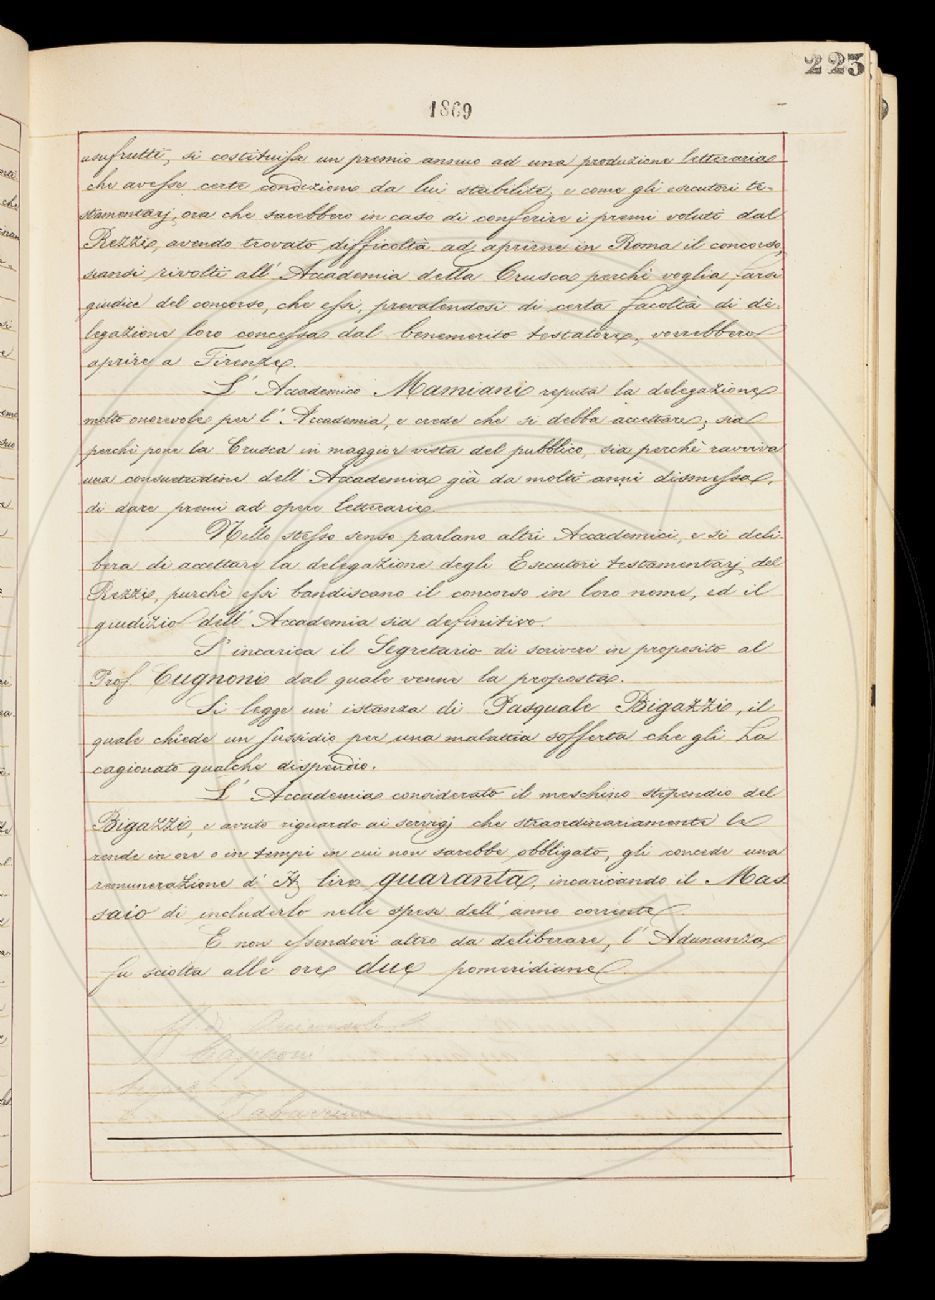 223
1869
usufrutti, si costituisse un premio annuo ad una produzione letteraria
che avesse certe condizioni da lui stabilite, e come gli esecutori te-
stamentarj, ora che sarebbero in caso di conferire i premi voluti dal
Rezzi, avendo trovato difficoltà ad aprirne in Roma il concorso,
siansi rivolti all' Accademia della Crusca perchè voglia farsi
giudice del concorso, che essi, prevalendosi di certa facoltà di de-
legazione loro concessa dal benemerito testatore, vorrebbero
aprire a Firenze.
L' Accademico Mamiani reputa la delegazione
molto onorevole per l' Accademia, e crede che si debba accettare; sia
perchè pone la Crusca in maggior vista del pubblico, sia perchè ravviva
una consuetudine dell' Accademia già da molti anni dismessa,
di dare premi ad opere letterarie.
Nello stesso senso parlano altri Accademici, e si deli-
bera di accettare la delegazione degli Esecutori testamentarj del
Rezzi, purchè essi bandiscano il concorso in loro nome, ed il
giudizio dell' Accademia sia definitivo.
S' incarica il Segretario di scrivere in proposito al
Prof. Cugnoni dal quale venne la proposta.
Si legge un' istanza di Pasquale Bigazzi, il
quale chiede un sussidio per una malattia sofferta che gli ha
cagionato qualche dispendio.
L' Accademia considerato il meschino stipendio del
Bigazzi, e avuto riguardo ai servigj che straordinariamente le
rende in ore o in tempi in cui non sarebbe obbligato, gli concede una
remunerazione d' It. lire quaranta, incaricando il Mas
saio di includerlo nelle spese dell' anno corrente.
E non essendovi altro da deliberare, l' Adunanza
fu sciolta alle ore due pomeridiane.
Capponi
Tabarrini